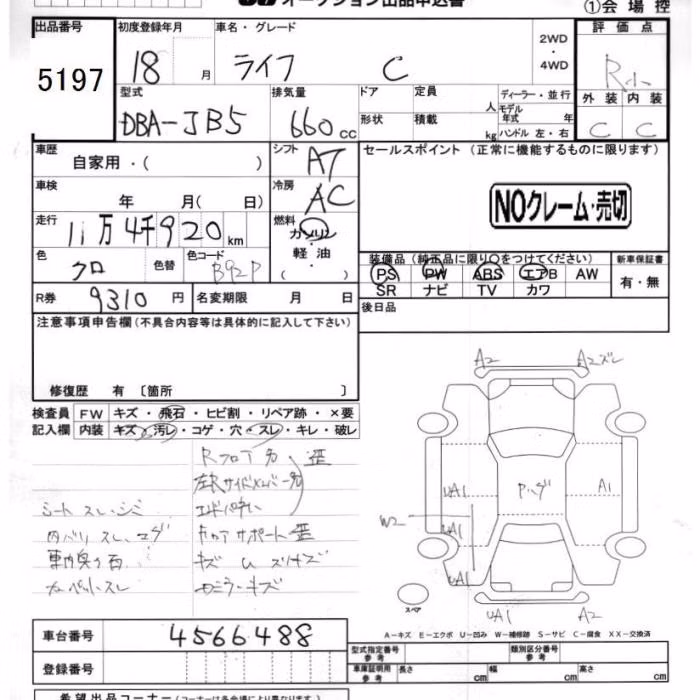 オークション出品申込書
①会場控
出品番号 初度登録年月 車名・グレード 2WD・4WD 評価点
5197 18 月 ライフ C R小
外装 内装
C C
型式 排気量 ドア 定員 人 ディーラー・並行
DBA-JB5 660 cc 形状 積載 kg モデル年式 年
ハンドル 左・右
車歴 自家用・( ) シフト AT セールスポイント (正常に機能するものに限ります)
車検 年 月(日) 冷房 AC
NOクレーム・売切
走行 11万4千920 km 燃料 ガソリン・軽油・( )
色 クロ 色替 色コード B92P
装備品(純正品に限り○をつけてください) 新車保証書
PS PW ABS エアB AW 有・無
SR ナビ TV カワ
R券 9310 円 名変期限 月 日 後日品
注意事項申告欄(不具合内容等は具体的に記入して下さい)
修復歴 有 〔箇所 〕
検査員記入欄 FW キズ・飛石・ヒビ割・リペア跡・×要
内装 キズ・汚レ・コゲ・穴・スレ・キレ・破レ
Rフロア
左Rサイドメンバー
シート スレ・シミ
内バリ スレ エグ
カーペット・スレ
サポート
キズ
ロミラーキズ
A2 A2ズレ
UA1 A1
W2
UA1
UA1
スペア
UA1 A2
A-キズ E-エクボ U-凹み W-補修跡 S-サビ C-腐食 XX-交換済
車台番号 4566488
登録番号
型式指定番号 参考 類別区分番号 参考
車庫証明用 参考 長さ cm 幅 cm 高さ cm
希望出品コーナー(コーナーによって参加規定が異なります。)